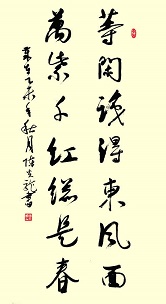 等閑識得東風面
萬紫千紅總是春
乙未年秋月陳書